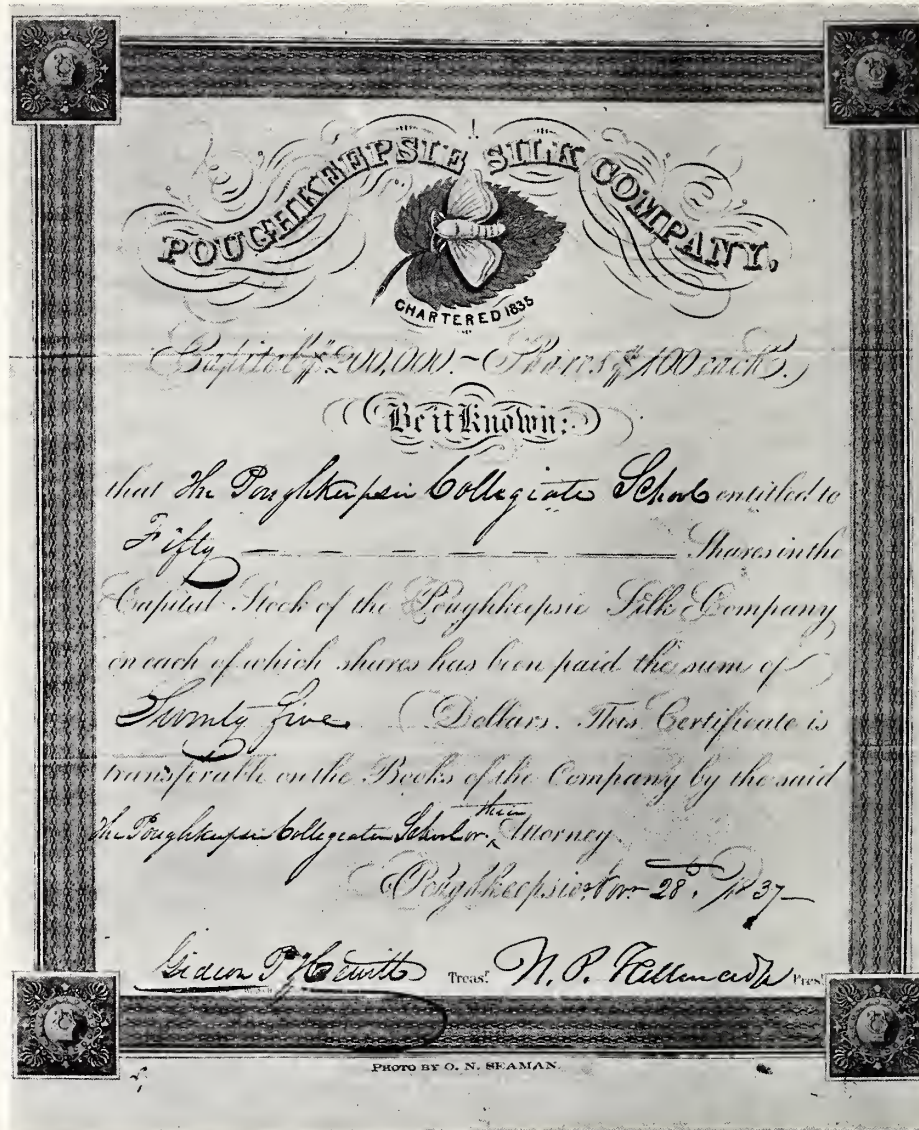 POUGHKEEPSIE SILK COMPANY.
CHARTERED 1835
Capital $200,000.– Shares $100 each.
Be it Known:
that The Poughkeepsie Collegiate School entitled to
Fifty — — — — — — Shares in the
Capital Stock of the Poughkeepsie Silk Company
on each of which shares has been paid the sum of
Twenty five Dollars. This Certificate is
transferable on the Books of the Company by the said
The Poughkeepsie Collegiate School or their Attorney
Poughkeepsie Nov. 28th. 1837
Gideon P. Hewitt Treasr. N. P. Prest
PHOTO BY O. N. SEAMAN.